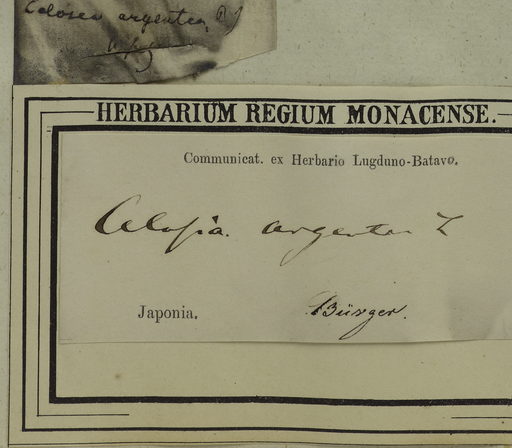 Celosia argentea
HERBARIUM REGIUM MONACENSE.
Communicat. ex Herbario Lugduno-Batavo.
Celosia. argentea L
Japonia.
Bürger.